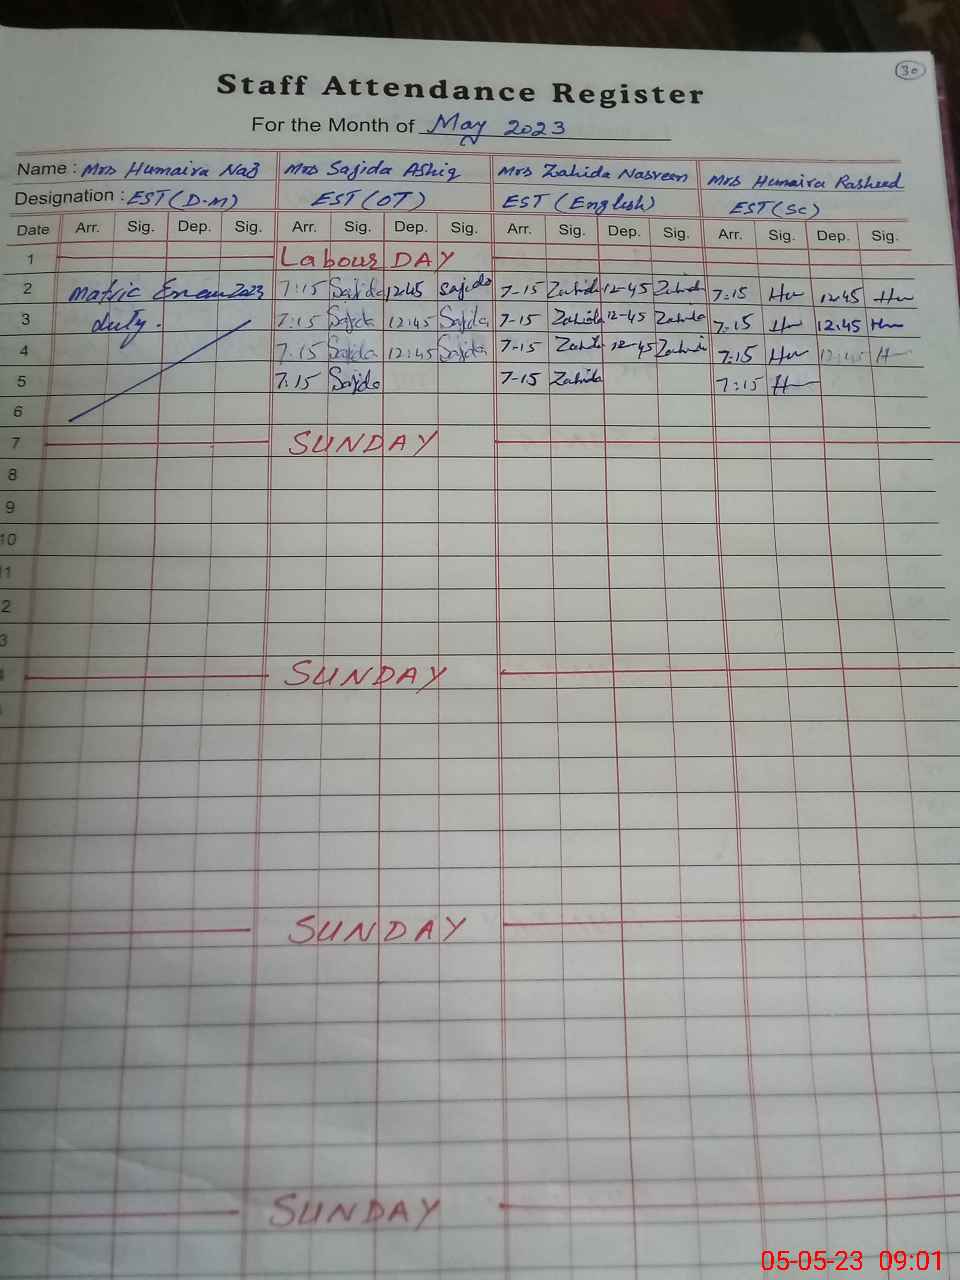 30
Staff Attendance Register
For the Month of May 2023
Name : Mrs Humaira Naz Mrs Sajida Ashiq Mrs Zahida Nasreen Mrs Humaira Rasheed
Designation : EST (D.M) EST (OT) EST (English) EST (Sc)
Date Arr. Sig. Dep. Sig. Arr. Sig. Dep. Sig. Arr. Sig. Dep. Sig. Arr. Sig. Dep. Sig.
1 Labour DAY
2 Matric Exam 2023 7:15 Sajida 12:45 Sajida 7-15 Zahida 12-45 Zahida 7:15 Hu 12:45 Hu
3 duty. 7:15 Sajida 12:45 Sajida 7-15 Zahida 12-45 Zahida 7:15 Hu 12:45 Hu
4 7:15 Sajida 12:45 Sajida 7-15 Zahida 12-45 Zahida 7:15 Hu 12:45 H
5 7:15 Sajida 7-15 Zahida 7:15 H
6
7 SUNDAY
8
9
10
11
2
3
SUNDAY
SUNDAY
SUNDAY
05-05-23 09:01